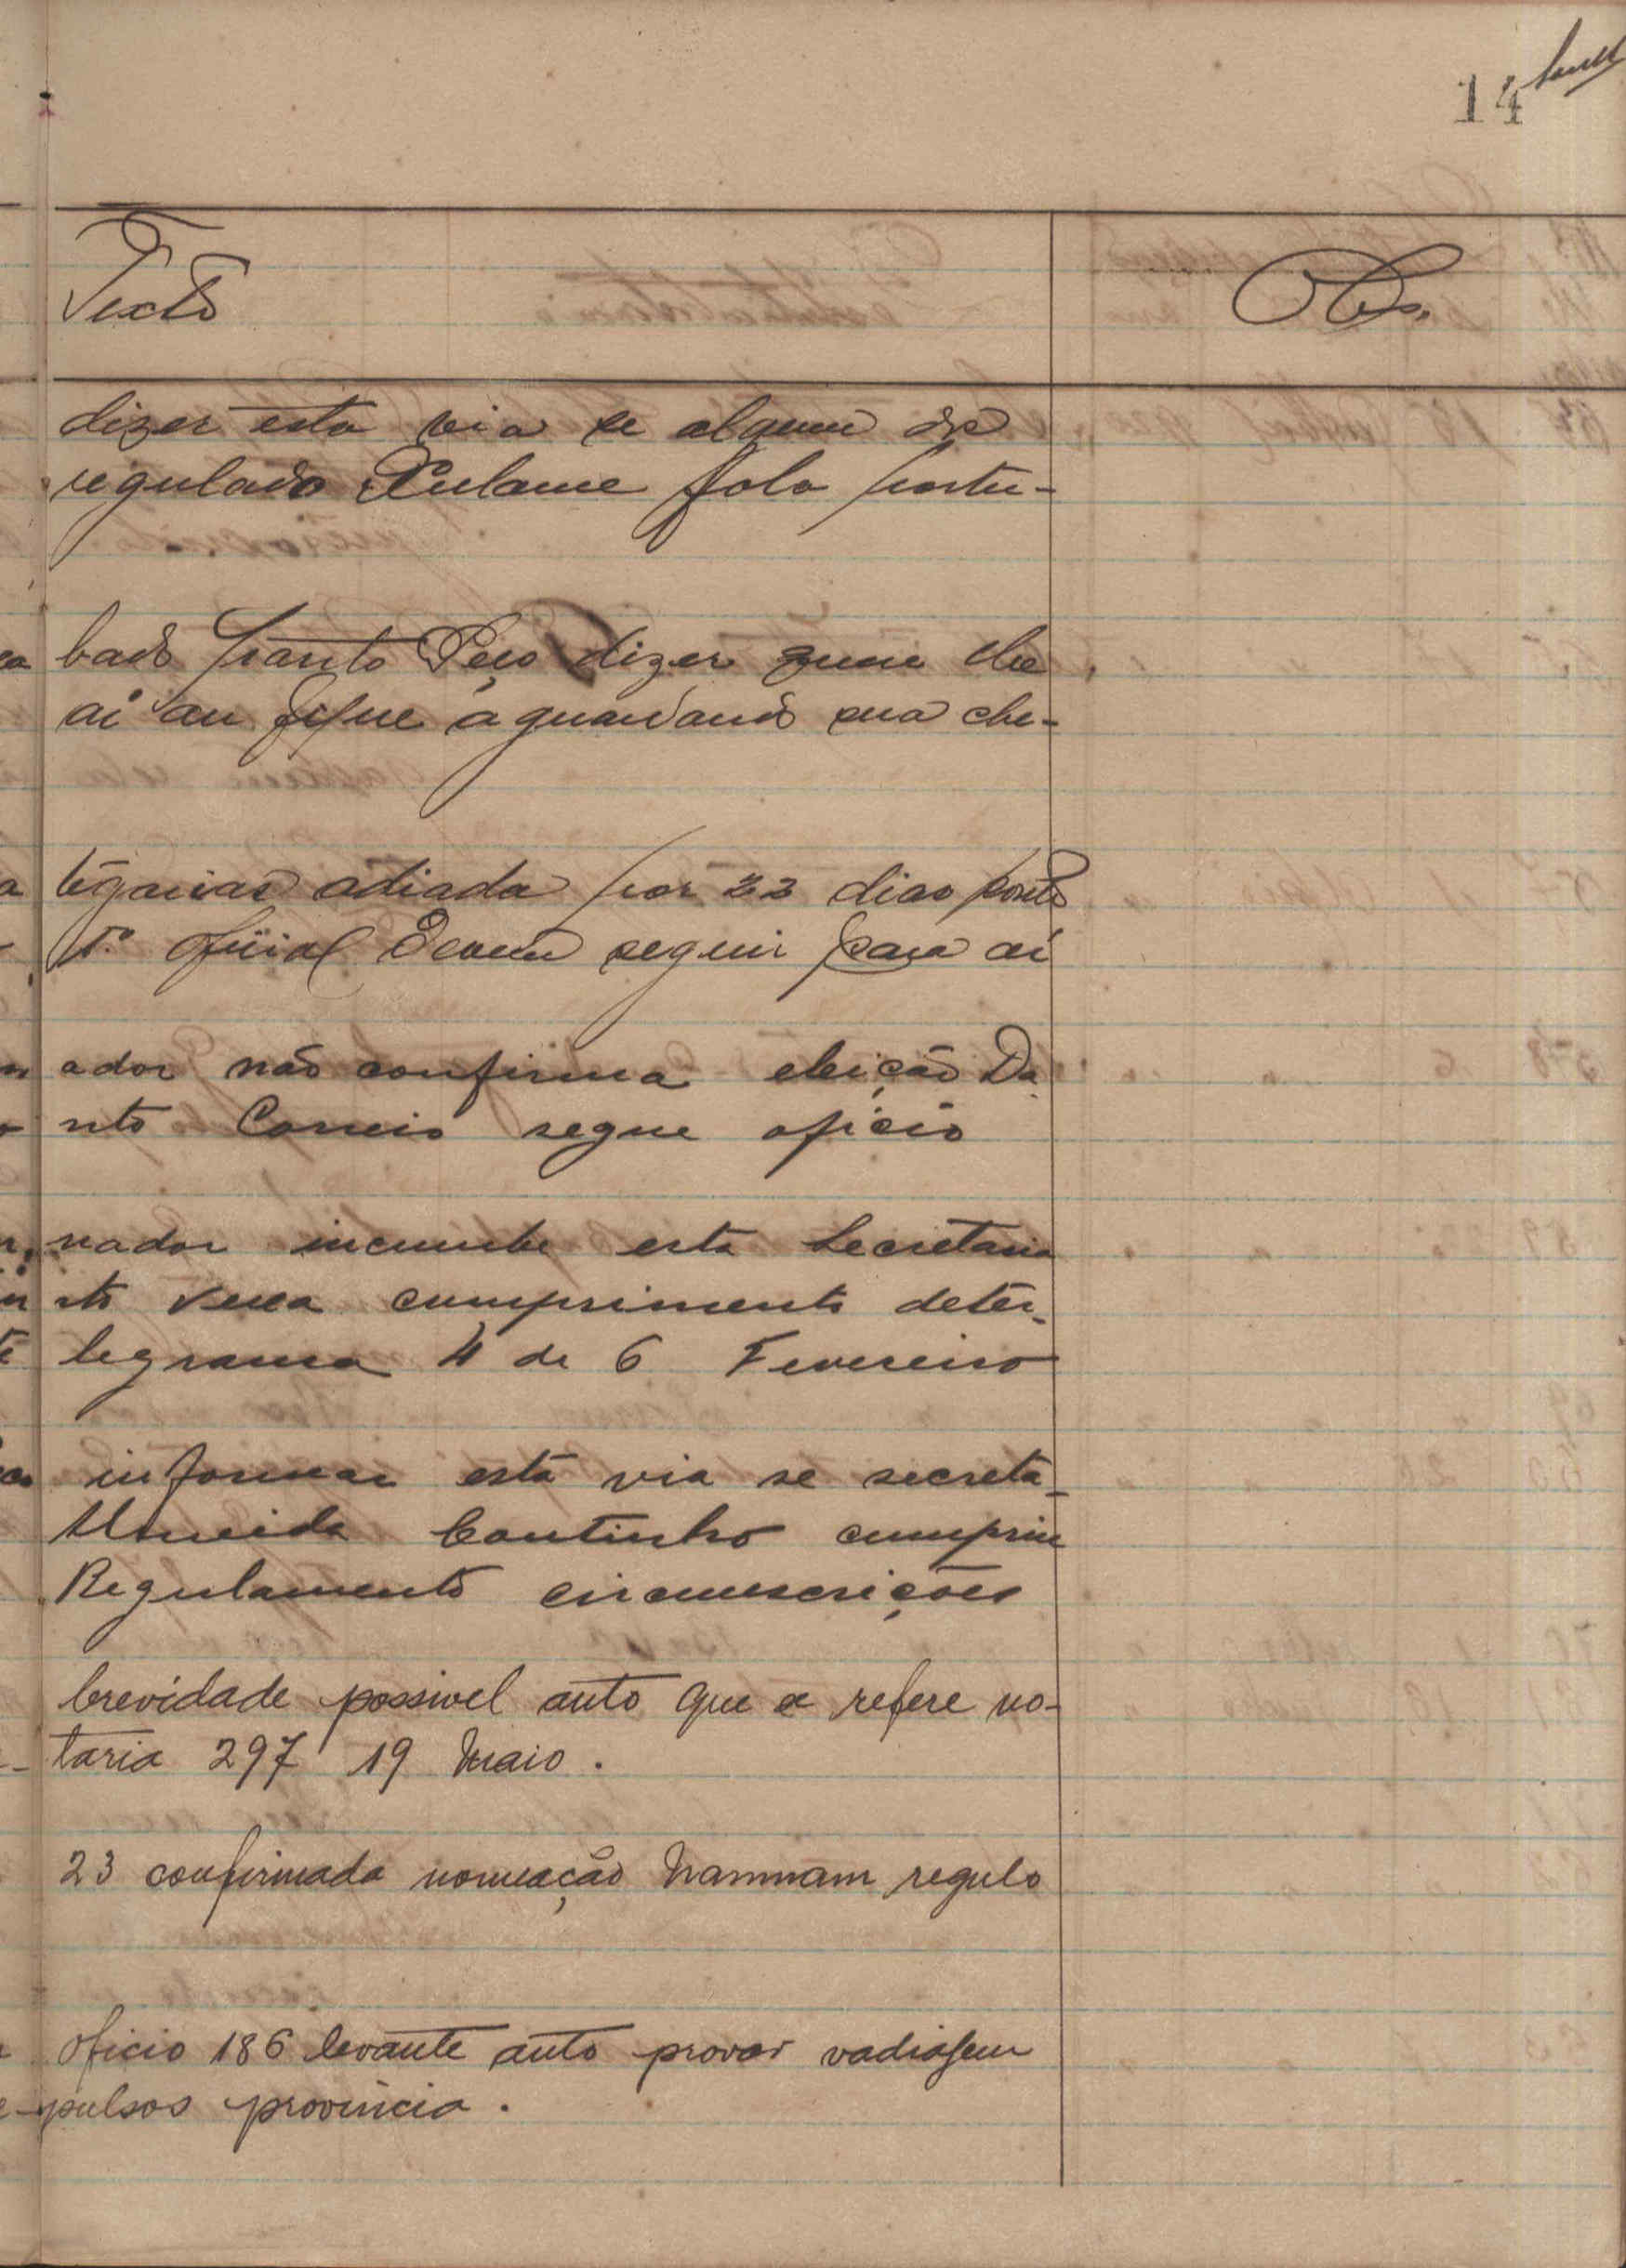 14
Texto
Obs.
dizer esta via se alguem do
regulado fala portu-
bado Peço dizer quem
ai ou fique aguardando sua che-
adiada por 22 dias
1.º oficial seguir para aí
ador não confirma eleição Da
nto Correio segue oficio
nador incumbe esta Secretaria
nto cumprimento deter-
legrama 4 de 6 Fevereiro
informar esta via se secretá-
Almeida Coutinho cumpriu
Regulamento circunscrições
brevidade possivel auto que se refere no-
taria 297 19 Maio.
23 confirmada nomeação regulo
oficio 186 levante auto provar vadiagem
pulsos provincia.